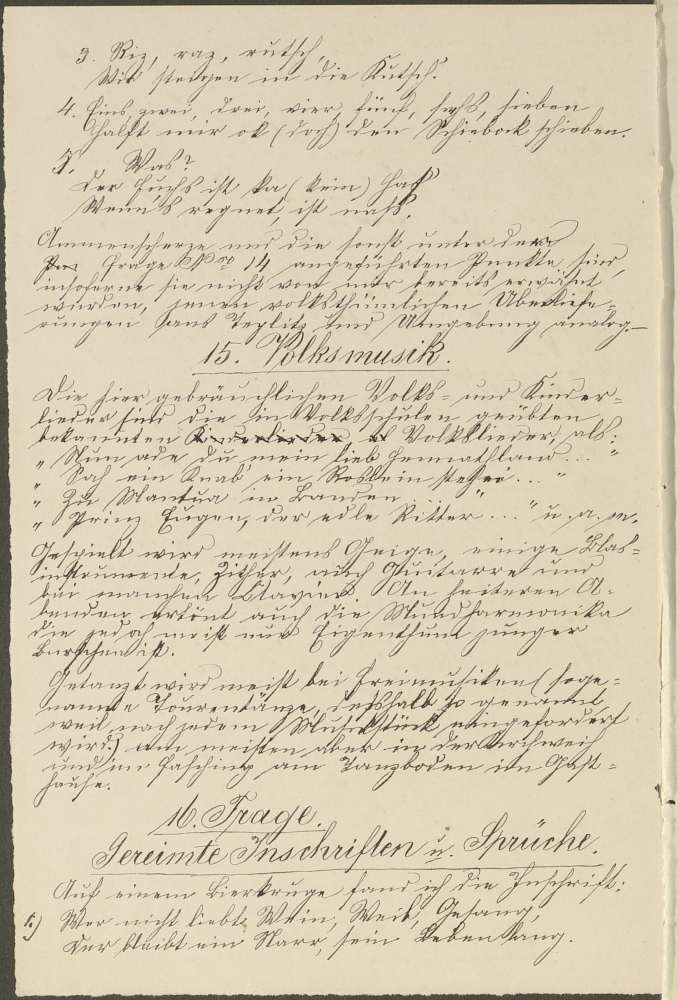 3. Riz, raz, rutsch,
Wir steigen in die Kutsch.
4. Eins, zwei, drei, vier, fünf, sechs, sieben
Halft mir ok (doch) den Schiebock schieben.
5. Was?
Der Fuchs ist ka (kein) Has
Wenn's regnet ist naß.
Ammenscherze und die sonst unter der
Frage No 14 angeführten Punkte sind,
insoferne sie nicht von mir bereits erwähnt
wurden, jenen volksthümlichen Überliefe-
rungen aus Teplitz und Umgebung analog.—
15. Volksmusik.
Die hier gebräuchlichen Volks- und Kinder-
lieder sind die in Volksschulen geübten,
bekannten Kinderlieder, Volkslieder, als:
„ Nun ade du mein lieb Heimathland... "
„ Sah ein Knab' ein Röslein stehen... "
„ Zu Mantua in Banden... "
„ Prinz Eugen, der edle Ritter..." u. a. m.
Gespielt wird meistens Geige, einige Blas-
instrumente, Zither, auch Guitarre und
bei manchen Clavier. An heiteren A-
benden ertönt auch die Mundharmonika
die jedoch meist nur Eigenthum junger
Burschen ist.
Getanzt wird meist bei Freimusiken (soge-
nannte Tourentänze, deßhalb so genannt,
weil nach jedem Musikstück eingefordert
wird.) am meisten aber in der Kirchweih
und im Fasching am Tanzboden im Gast-
hause.
16. Frage.
Gereimte Inschriften u. Sprüche.
Auf einem Bierkruge fand ich die Inschrift:
1.) Wer nicht liebt Wein, Weib, Gesang,
Der bleibt ein Narr, sein Leben lang.